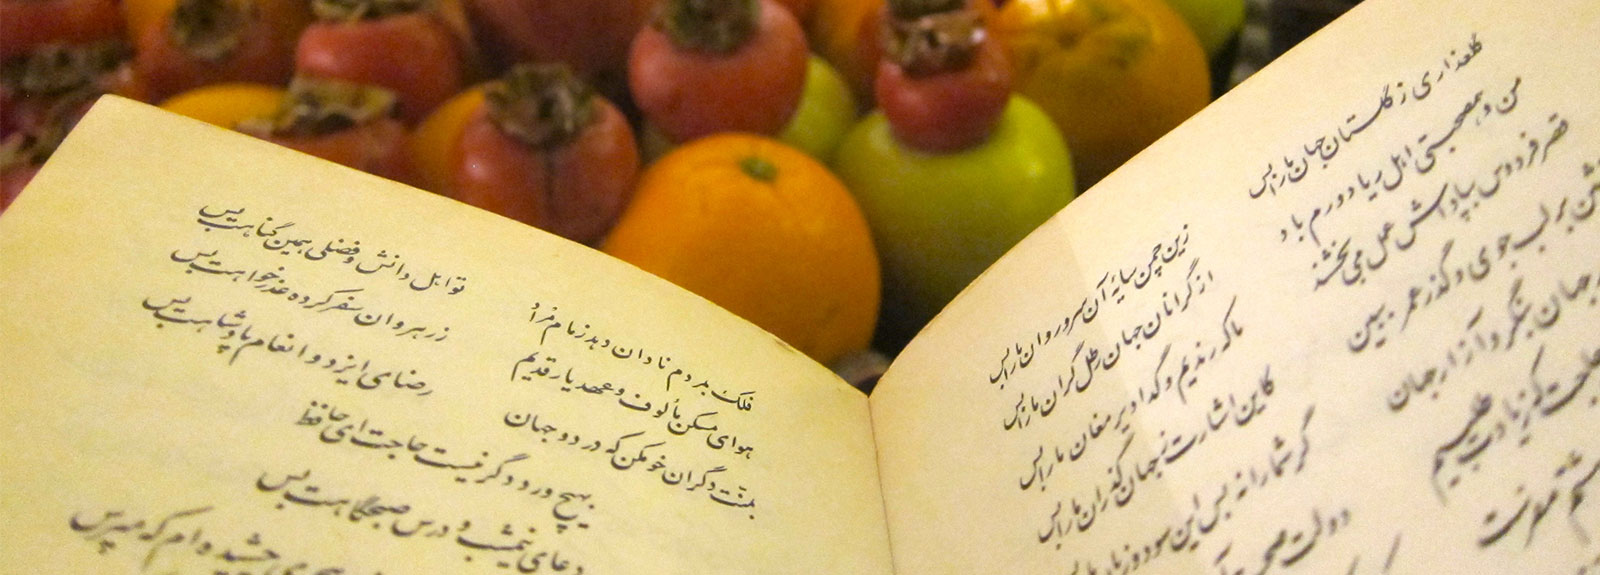 گلعذاری ز گلستان جهان ما را بس
زین چمن سایهٔ آن سرو روان ما را بس
من و همصحبتی اهل ریا دورم باد
از گرانان جهان رطل گران ما را بس
قصر فردوس بپاداش عمل می‌بخشند
ما که رندیم و گدا دیر مغان ما را بس
بر لب جوی و گذر عمر ببین
کاین اشارت ز جهان گذران ما را بس
جهان بنگر و آزار جهان
گر شما را نه بس این سود و زیان ما را بس
حاجت که زیادت طلبیم
دولت صحبت
فلک بمردم نادان دهد زمام مراد
تو اهل دانش و فضلی همین گناهت بس
هوای مسکن مألوف و عهد یار قدیم
ز رهروان سفر کرده عذر خواهت بس
بمنت دگران خو مکن که در دو جهان
رضای ایزد و انعام پادشاهت بس
بهیچ ورد دگر نیست حاجت ای حافظ
دعای نیمشب و درس صبحگاهت بس
چشیده ام که مپرس